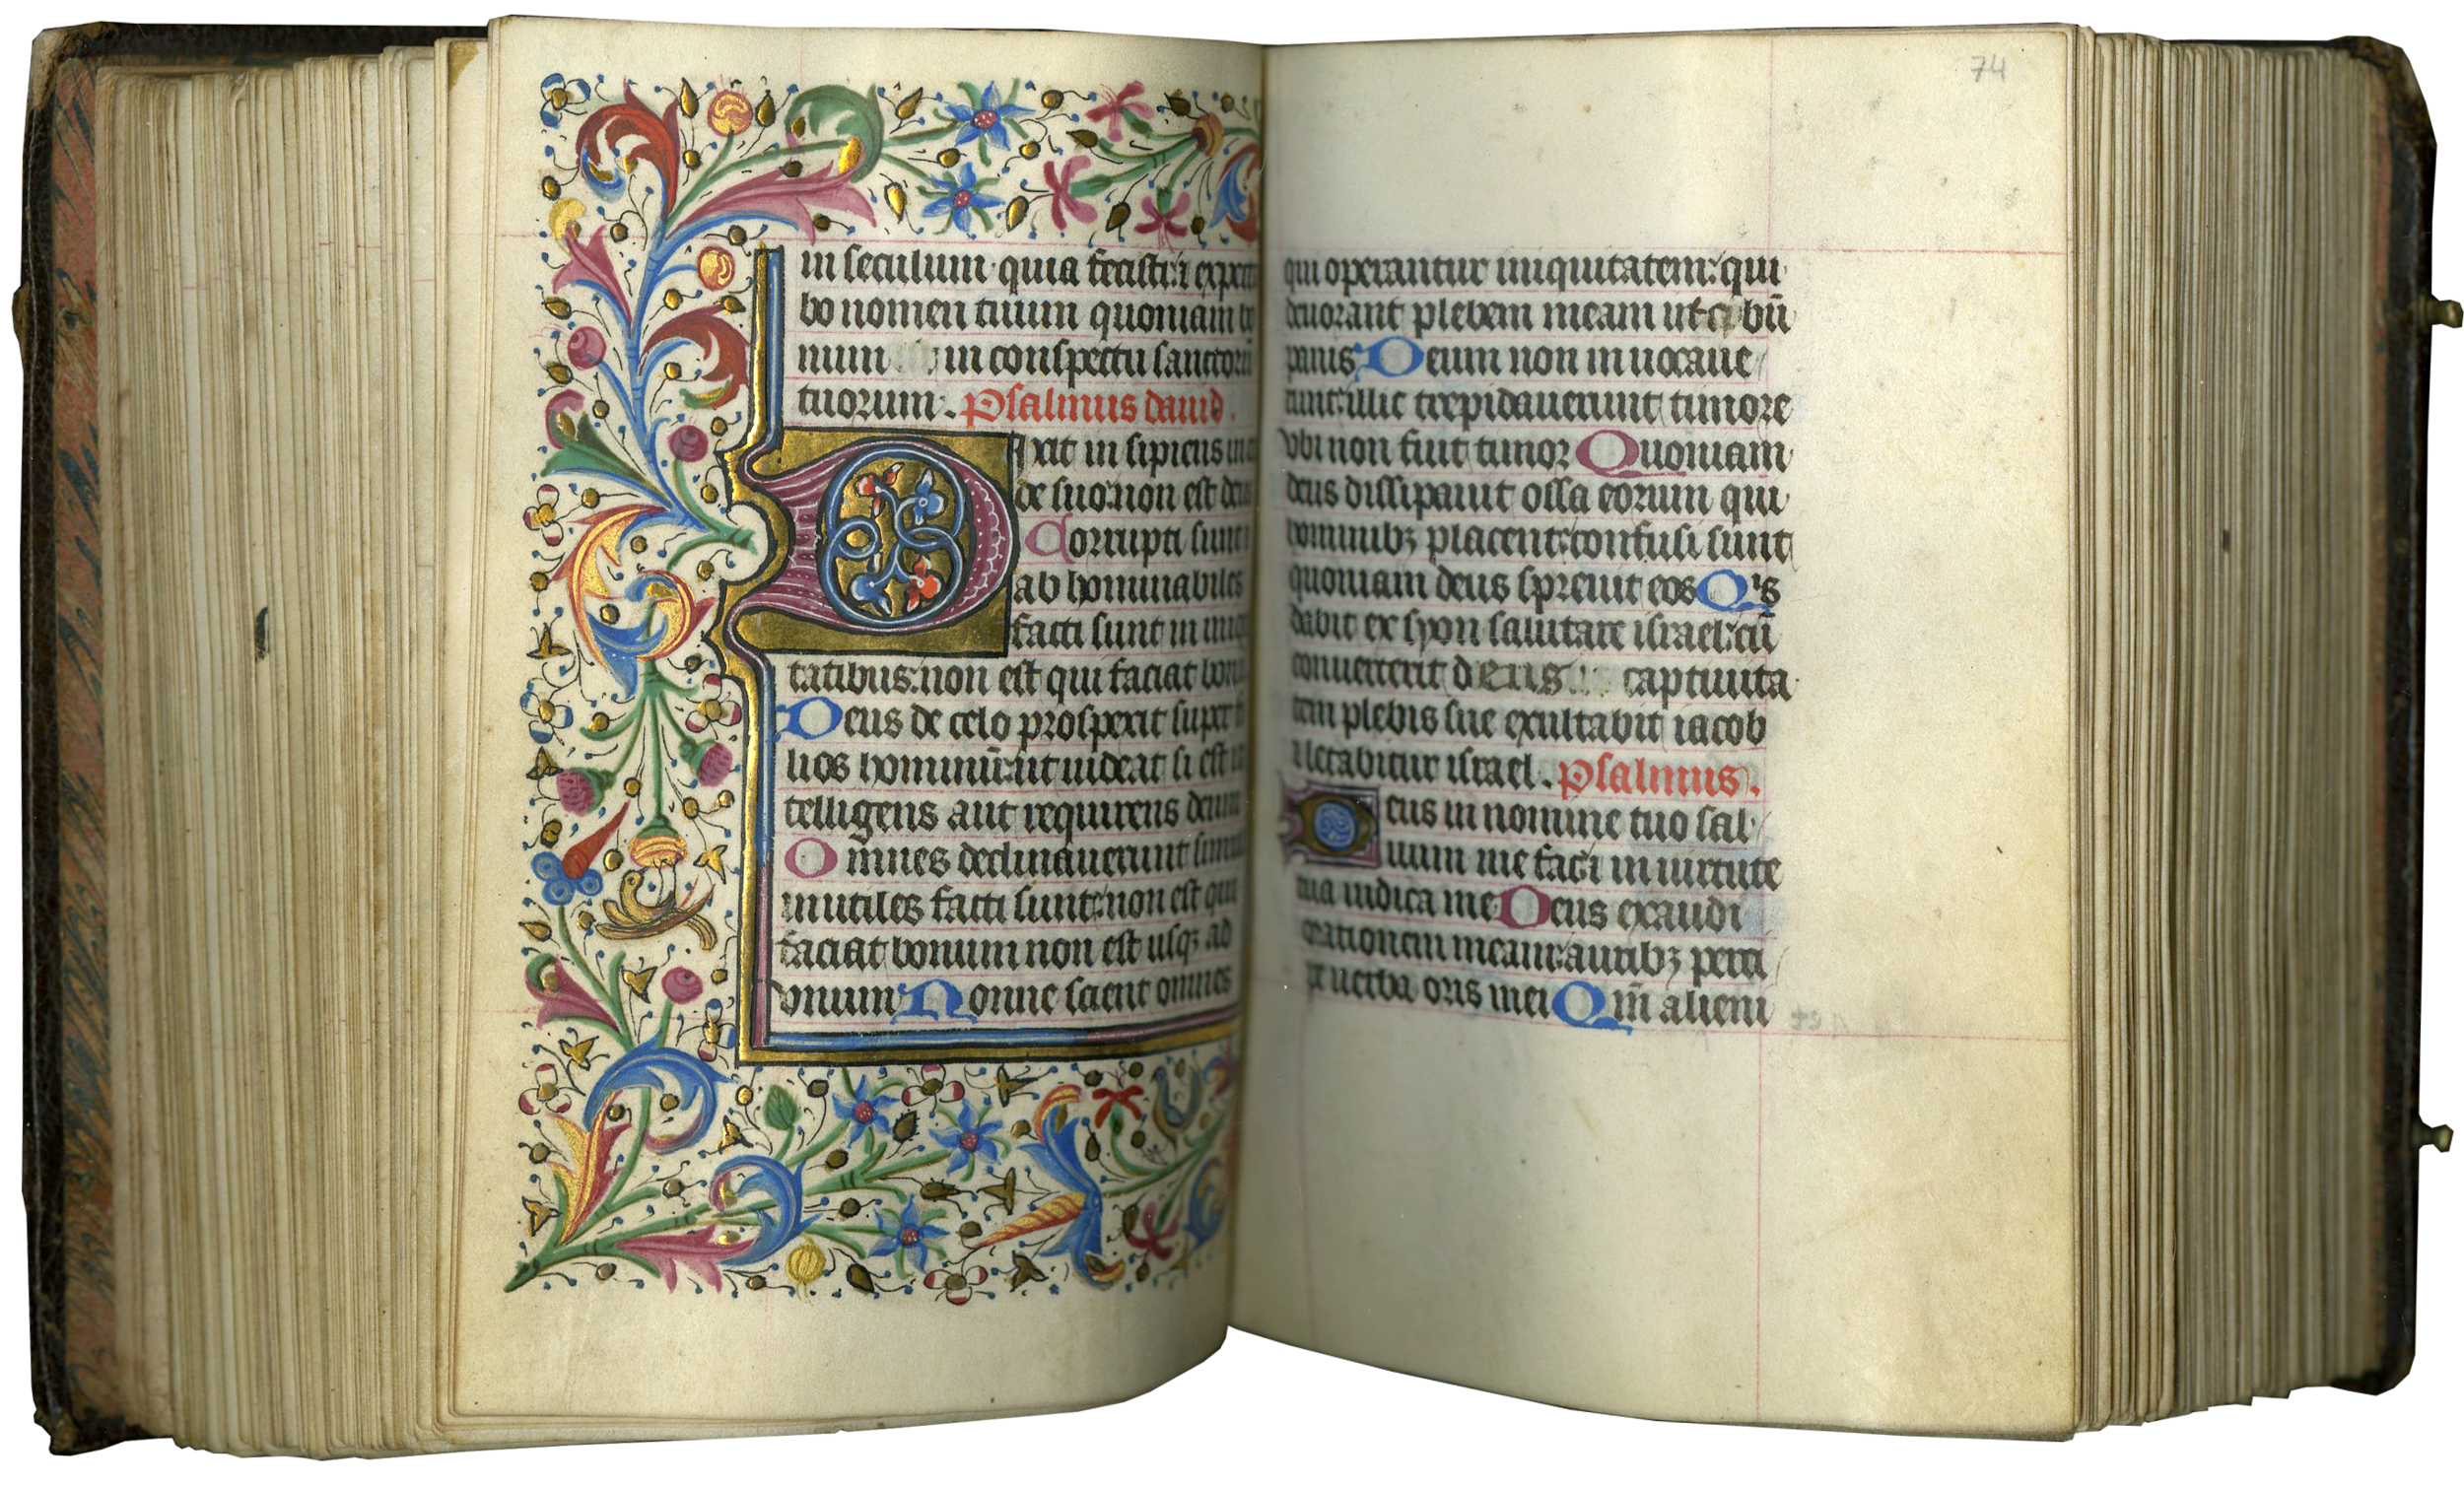 in seculum quia fecisti: ⁊ expecta
bo nomen tuum quoniam bo
num in conspectu sanctorū
tuorum. Psalmus dauid.
Dixit in sipiens in
de suo: non est deus
Corrupti sunt
ab hominabiles
facti sunt in iniqui
tatibus: non est qui faciat bonū
Deus de celo prospexit super
lios hominū: ut uideat si est in
telligens aut requirens deum
Omnes declinauerunt simul
inutiles facti sunt: non est qui
faciat bonum non est usqꝫ ad
vnum Nonne scient omnes
74
qui operantur iniquitatem: qui
deuorant plebem meam ut cibū
panis Deum non inuocaue
runt: illic trepidauerunt timore
vbi non fuit timor Quoniam
deus dissipauit ossa eorum qui
hominibꝫ placent: confusi sunt
quoniam deus spreuit eos Qⁱs
dabit ex syon salutare israel: cū
conuerterit deus captiuita
tem plebis sue exultabit iacob
⁊ letabitur israel. Psalmus.
Deus in nomine tuo sal
uum me fac: ⁊ in uirtute
tua iudica me Deus exaudi
orationem meam: auribꝫ perci
pe uerba oris mei Qm̄ alieni